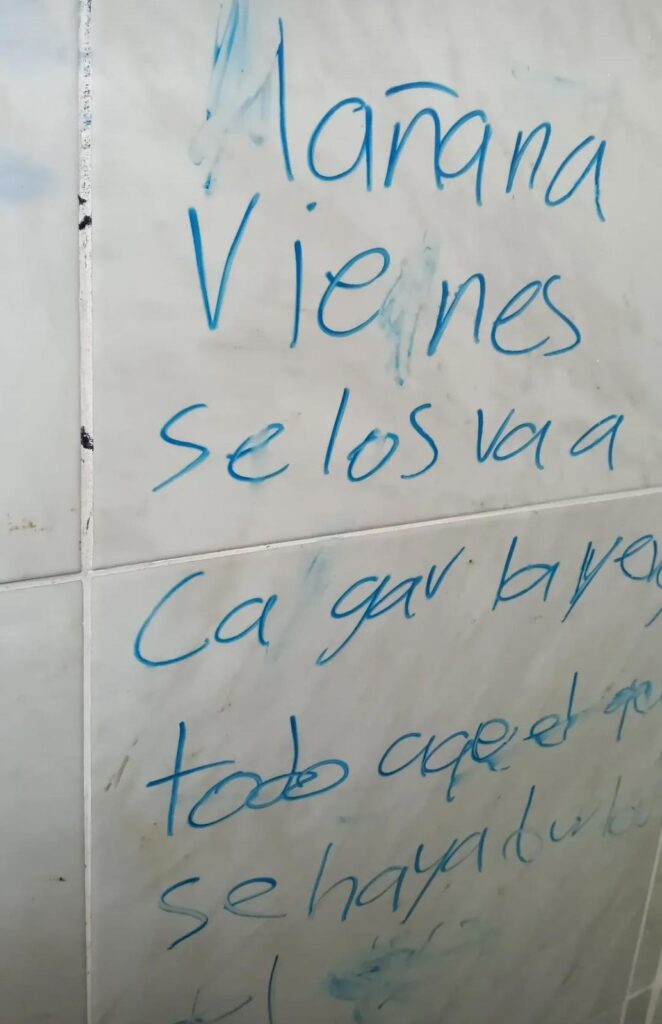 Mañana
Vienes
se los va a
Cagar la ye
todo aqe el
se haya burla